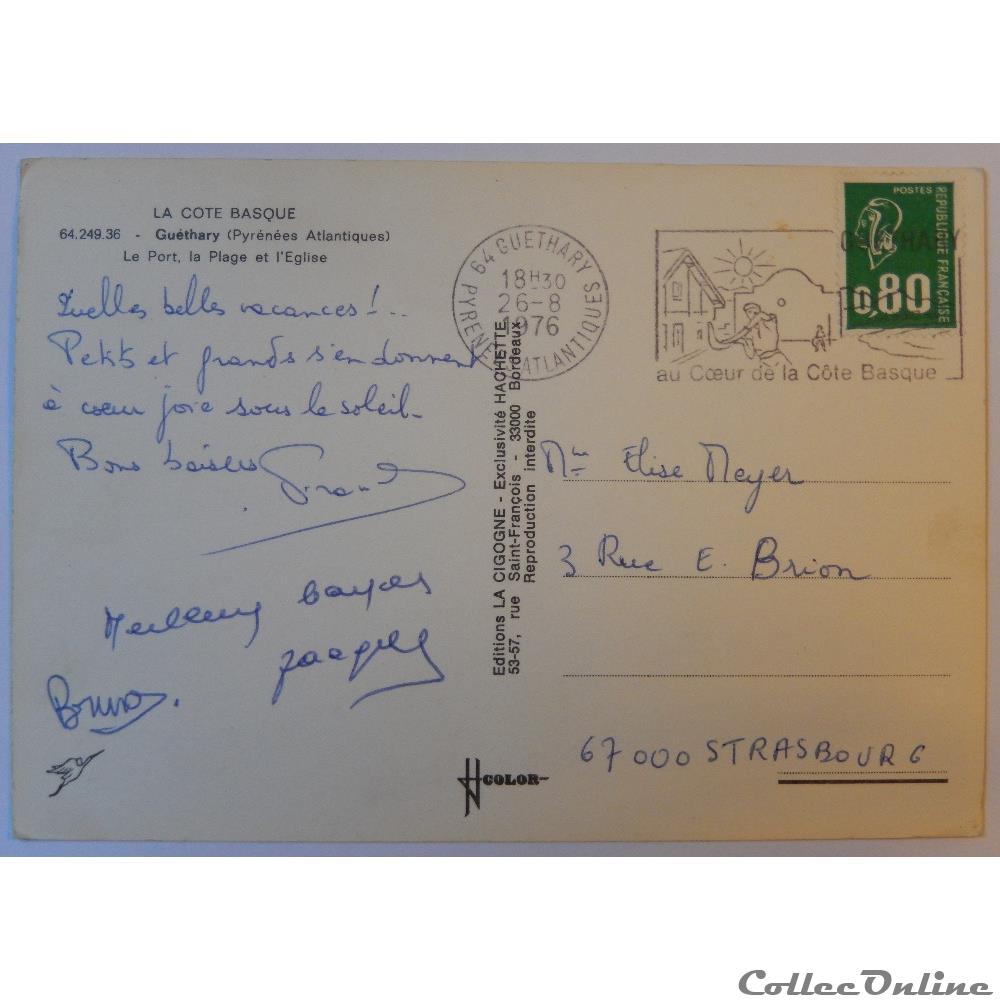 LA COTE BASQUE
64.249.36 - Guéthary (Pyrénées Atlantiques)
Le Port, la Plage et l'Eglise
Quelles belles vacances !..
Petits et grands s'en donnent
à coeur joie sous le soleil.
Bons baisers
Bruno.
64 GUETHARY
PYRENEES ATLANTIQUES
18H30
26-8
1976
au Cœur de la Côte Basque
POSTES
REPUBLIQUE FRANÇAISE
0,80
Editions LA CIGOGNE - Exclusivité HACHETTE
53-57, rue Saint-François - 33000 Bordeaux
Reproduction interdite
Mlle Élise Meyer
3 Rue E. Brion
67000 STRASBOURG
COLOR
CollecOnline